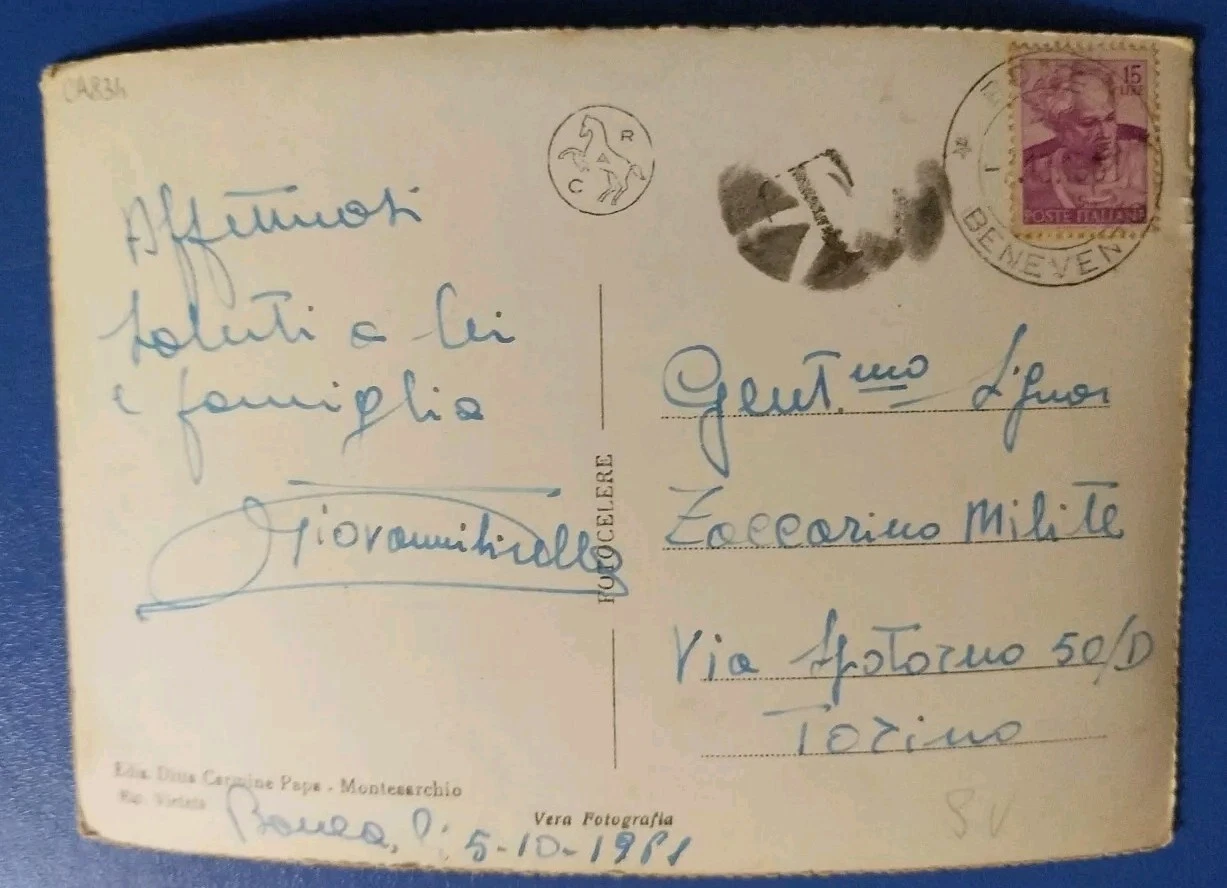 CA834
Affettuosi
saluti a Lei
e famiglia
R
C
15
LIRE
POSTE ITALIANE
BENEVEN
Gent.mo Signor
Zaccarino Milite
Via Spotorno 50/D
Torino
FOTOCELERE
Ediz. Ditta Carmine Papa - Montesarchio
Rip. Vietata
Vera Fotografia
Bonea, li 5-10-1961
SV